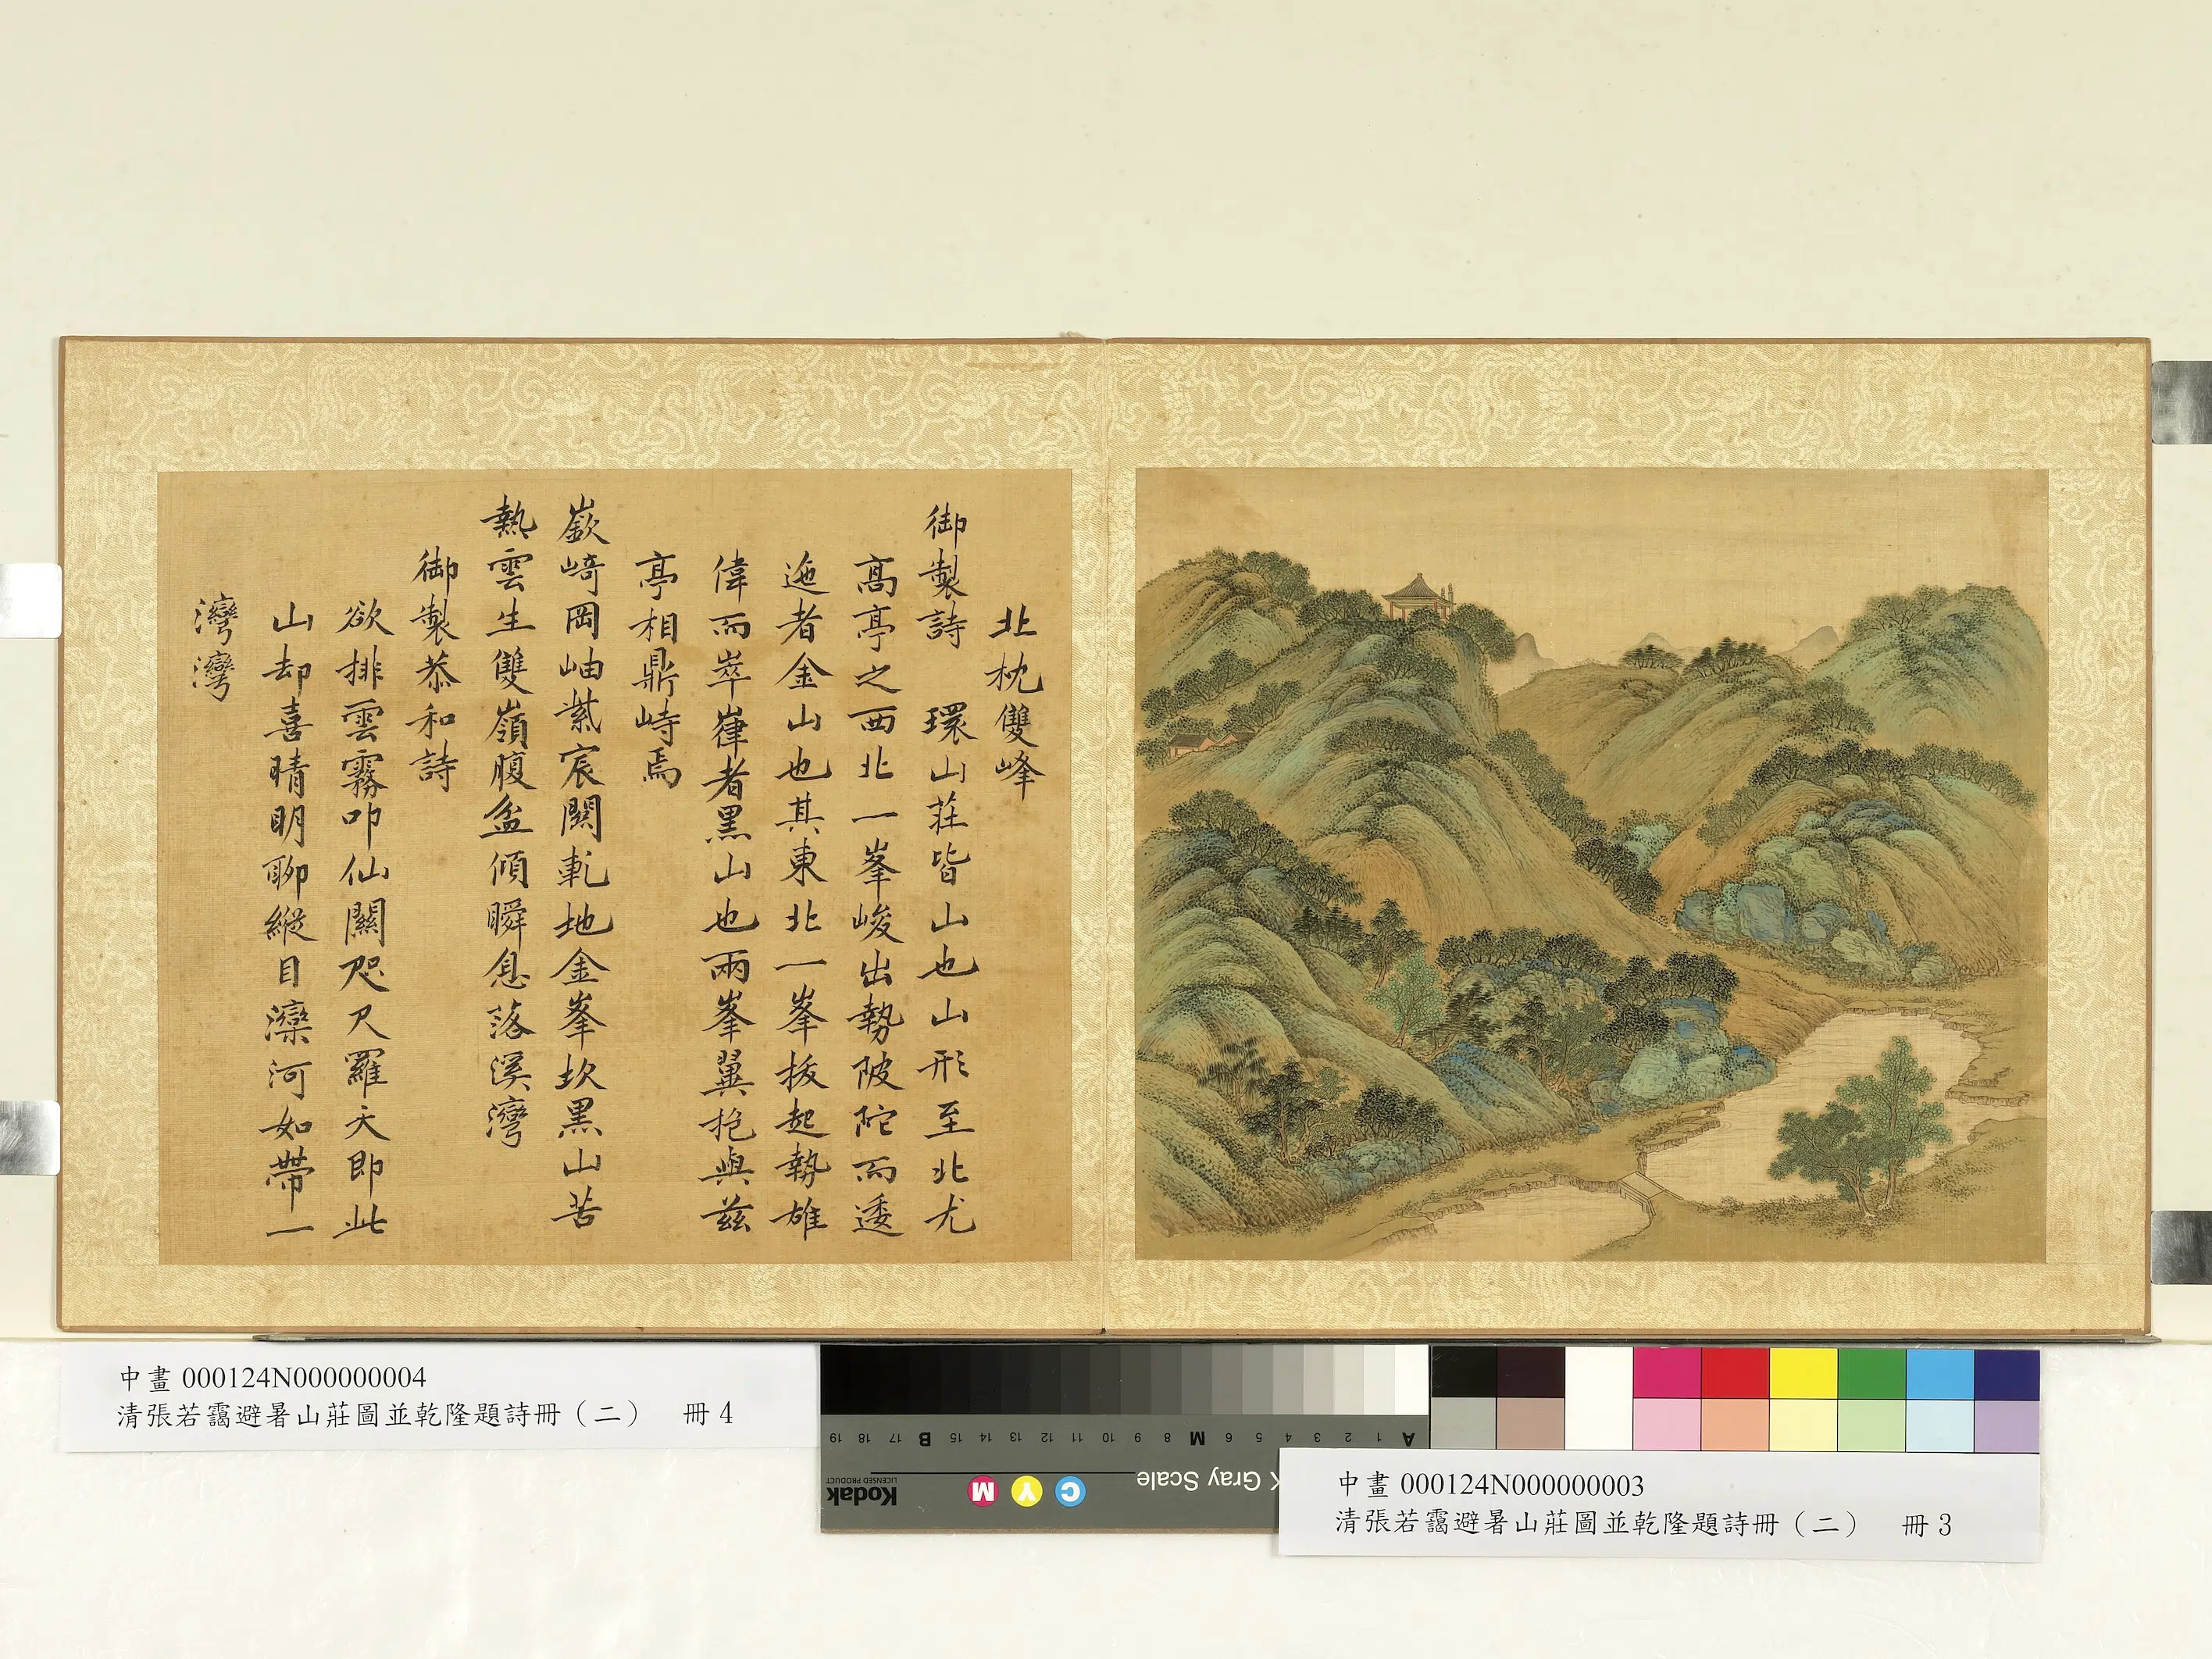 北枕雙峰
御製詩　環山莊皆山也山形至北尤
高亭之西北一峯峻出勢陂陀而逶
迤者金山也其東北一峯拔起勢雄
偉而崒嵂者黑山也兩峯翼抱與茲
亭相鼎峙焉
嶔崎岡岫紫宸關軋地金峯坎黑山苦
熱雲生雙嶺腹盆傾瞬息落溪灣
御製恭和詩
欲排雲霧叩仙關咫尺羅天即此
山却喜晴明聊縱目灤河如帶一
灣灣
中畫 000124N000000004
清張若靄避暑山莊圖並乾隆題詩冊（二）　冊 4
A 1 2 3 4 5 6 M 8 9 10 11 12 13 14 15 B 17 18 19
Gray Scale
C Y M
Kodak
LICENSED PRODUCT
中畫 000124N000000003
清張若靄避暑山莊圖並乾隆題詩冊（二）　冊 3